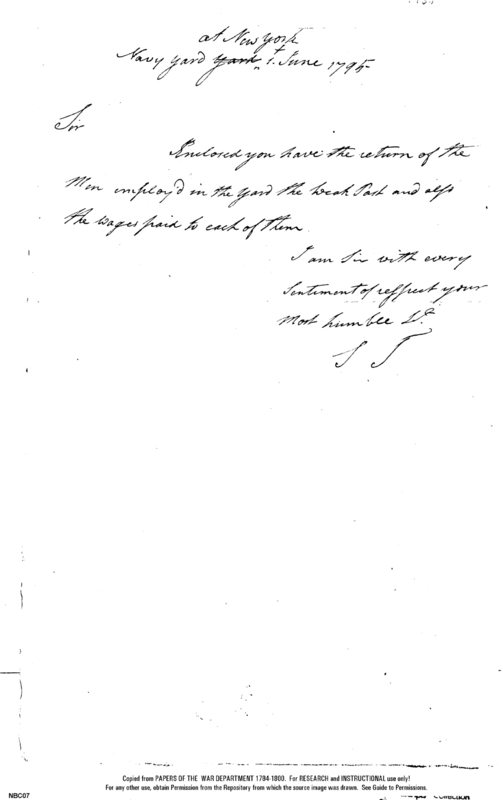 at New York
Navy yard yard 1t June 1795
Sir
Enclosed you have the return of the
Men employ'd in the yard the Week Past and also
the Wages paid to each of them
I am Sir with every
Sentiment of respect your
Most humble St
Copied from PAPERS OF THE WAR DEPARTMENT 1784-1800. For RESEARCH and INSTRUCTIONAL use only!
For any other use, obtain Permission from the Repository from which the source image was drawn. See Guide to Permissions.
NBC07